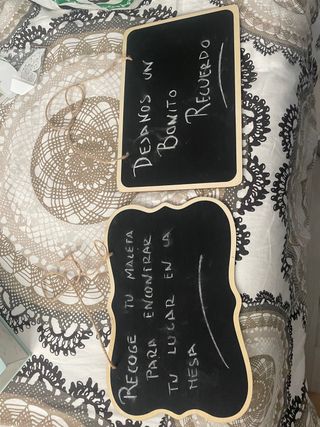 DEJANOS UN
BONITO
RECUERDO
RECOGE TU MALETA
PARA ENCONTRAR
TU LUGAR EN LA
MESA